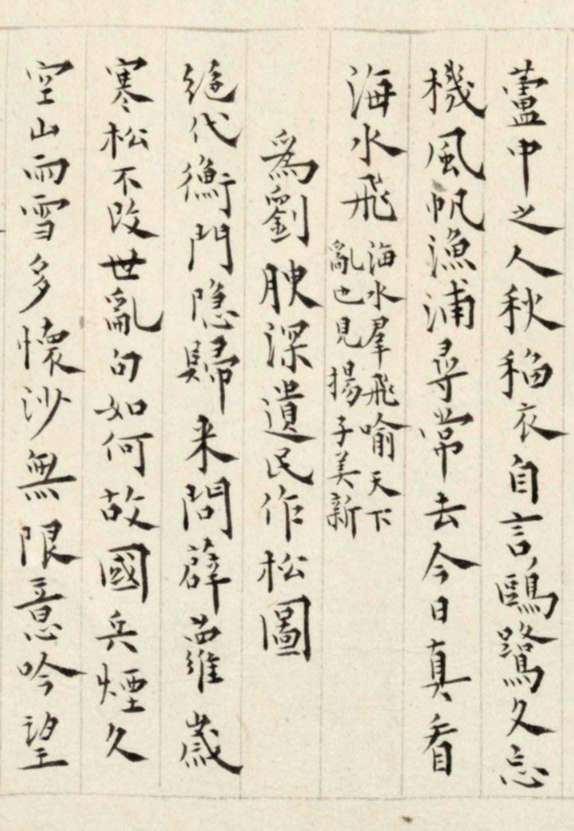 蘆中之人秋稻衣自言鷗鷺久忘
機風帆漁浦尋常去今日真看
海水飛
海水羣飛喻天下
亂也見揚子美新
為劉腴深遺民作松圖
絕代衡門隱歸来問薜蘿歲
寒松不改世亂句如何故國兵煙久
空山雨雪多懷沙無限意吟望